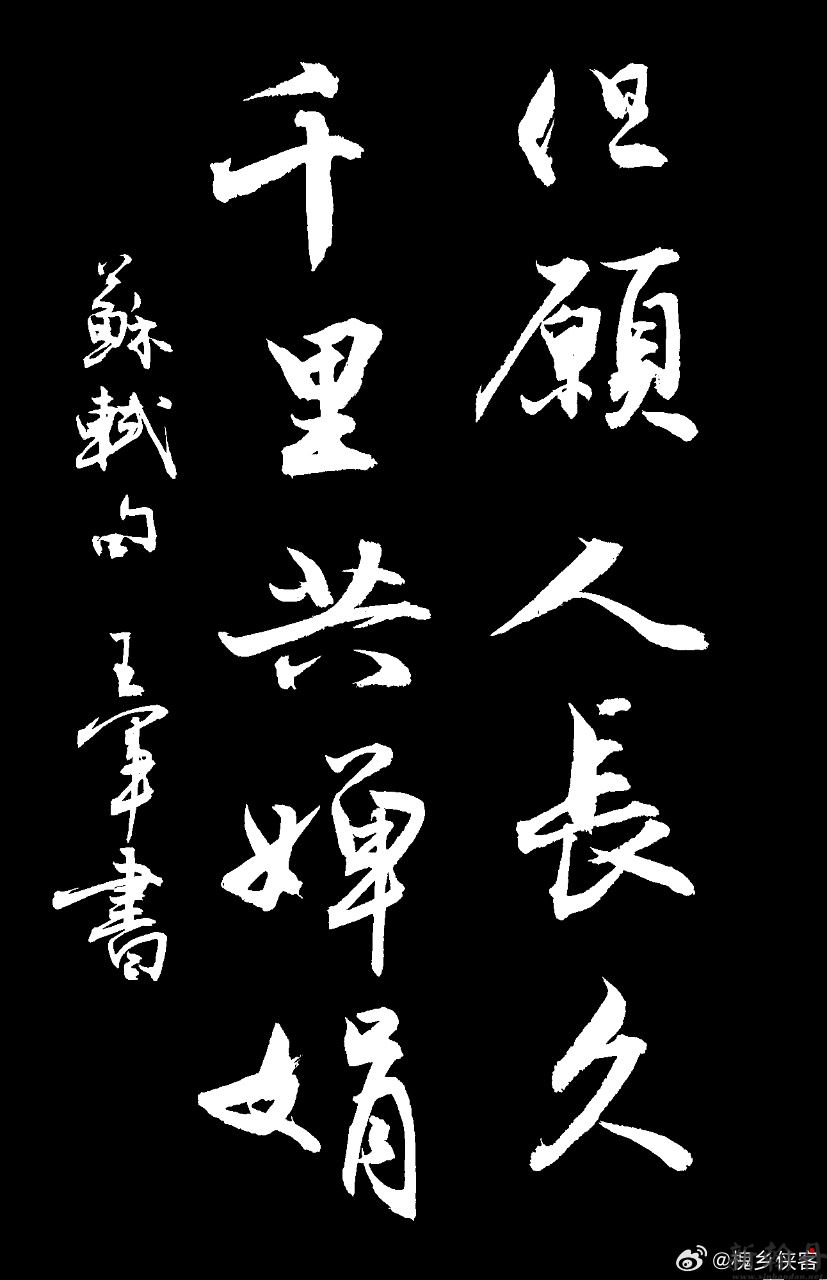 但願人長久
千里共嬋娟
蘇軾句 王軍書
@槐乡侠客